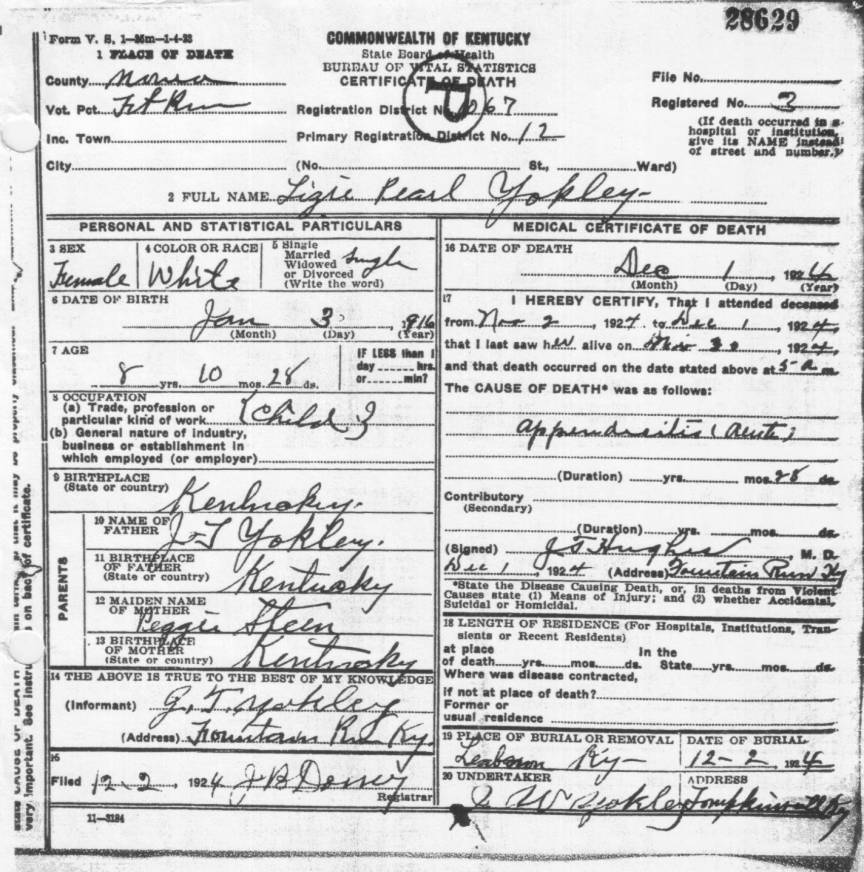 28629
Form V. S. 1—Mm—1-4-23
1 PLACE OF DEATH
COMMONWEALTH OF KENTUCKY
State Board of Health
BUREAU OF VITAL STATISTICS
CERTIFICATE OF DEATH
County Monroe
File No.
Vot. Pct. Ft Run
Registration District No. 1267
Registered No. 3
Inc. Town
Primary Registration District No. 12
(If death occurred in a hospital or institution, give its NAME instead of street and number.)
City (No. St., Ward)
2 FULL NAME Lizie Pearl Yokley
PERSONAL AND STATISTICAL PARTICULARS
3 SEX
Female
4 COLOR OR RACE
White
5 Single
Married
Widowed
or Divorced
(Write the word)
Single
6 DATE OF BIRTH
Jan 3, 1916
(Month) (Day) (Year)
7 AGE
8 yrs. 10 mos. 28 ds.
IF LESS than 1
day hrs.
or min?
8 OCCUPATION
(a) Trade, profession or
particular kind of work (Child)
(b) General nature of industry,
business or establishment in
which employed (or employer)
9 BIRTHPLACE
(State or country)
Kentucky.
PARENTS
10 NAME OF
FATHER
J T Yokley.
11 BIRTHPLACE
OF FATHER
(State or country)
Kentucky
12 MAIDEN NAME
OF MOTHER
Peggie Steen
13 BIRTHPLACE
OF MOTHER
(State or country)
Kentucky
14 THE ABOVE IS TRUE TO THE BEST OF MY KNOWLEDGE
(Informant) J. T. Yokley
(Address) Fountain Run Ky.
15
Filed 12-2, 1924 J B Dossey
Registrar
11—3184
MEDICAL CERTIFICATE OF DEATH
16 DATE OF DEATH
Dec 1, 1924
(Month) (Day) (Year)
17 I HEREBY CERTIFY, That I attended deceased
from Nov 2, 1924, to Dec 1, 1924,
that I last saw her alive on Nov 30, 1924,
and that death occurred on the date stated above at 5 a m.
The CAUSE OF DEATH* was as follows:
Appendisitis (Acute)
(Duration) yrs. mos. 28 ds.
Contributory
(Secondary)
(Duration) yrs. mos. ds.
(Signed) J T Hughes, M. D.
Dec 1, 1924 (Address) Fountain Run Ky
*State the Disease Causing Death, or, in deaths from Violent
Causes state (1) Means of Injury; and (2) whether Accidental,
Suicidal or Homicidal.
18 LENGTH OF RESIDENCE (For Hospitals, Institutions, Tran-
sients or Recent Residents)
at place In the
of death yrs. mos. ds. State yrs. mos. ds.
Where was disease contracted,
if not at place of death?
Former or
usual residence
19 PLACE OF BURIAL OR REMOVAL
Ky
DATE OF BURIAL
12-2, 1924
20 UNDERTAKER
J W Yokley
ADDRESS
Tompkinsville Ky
very important. See instru on back of certificate.